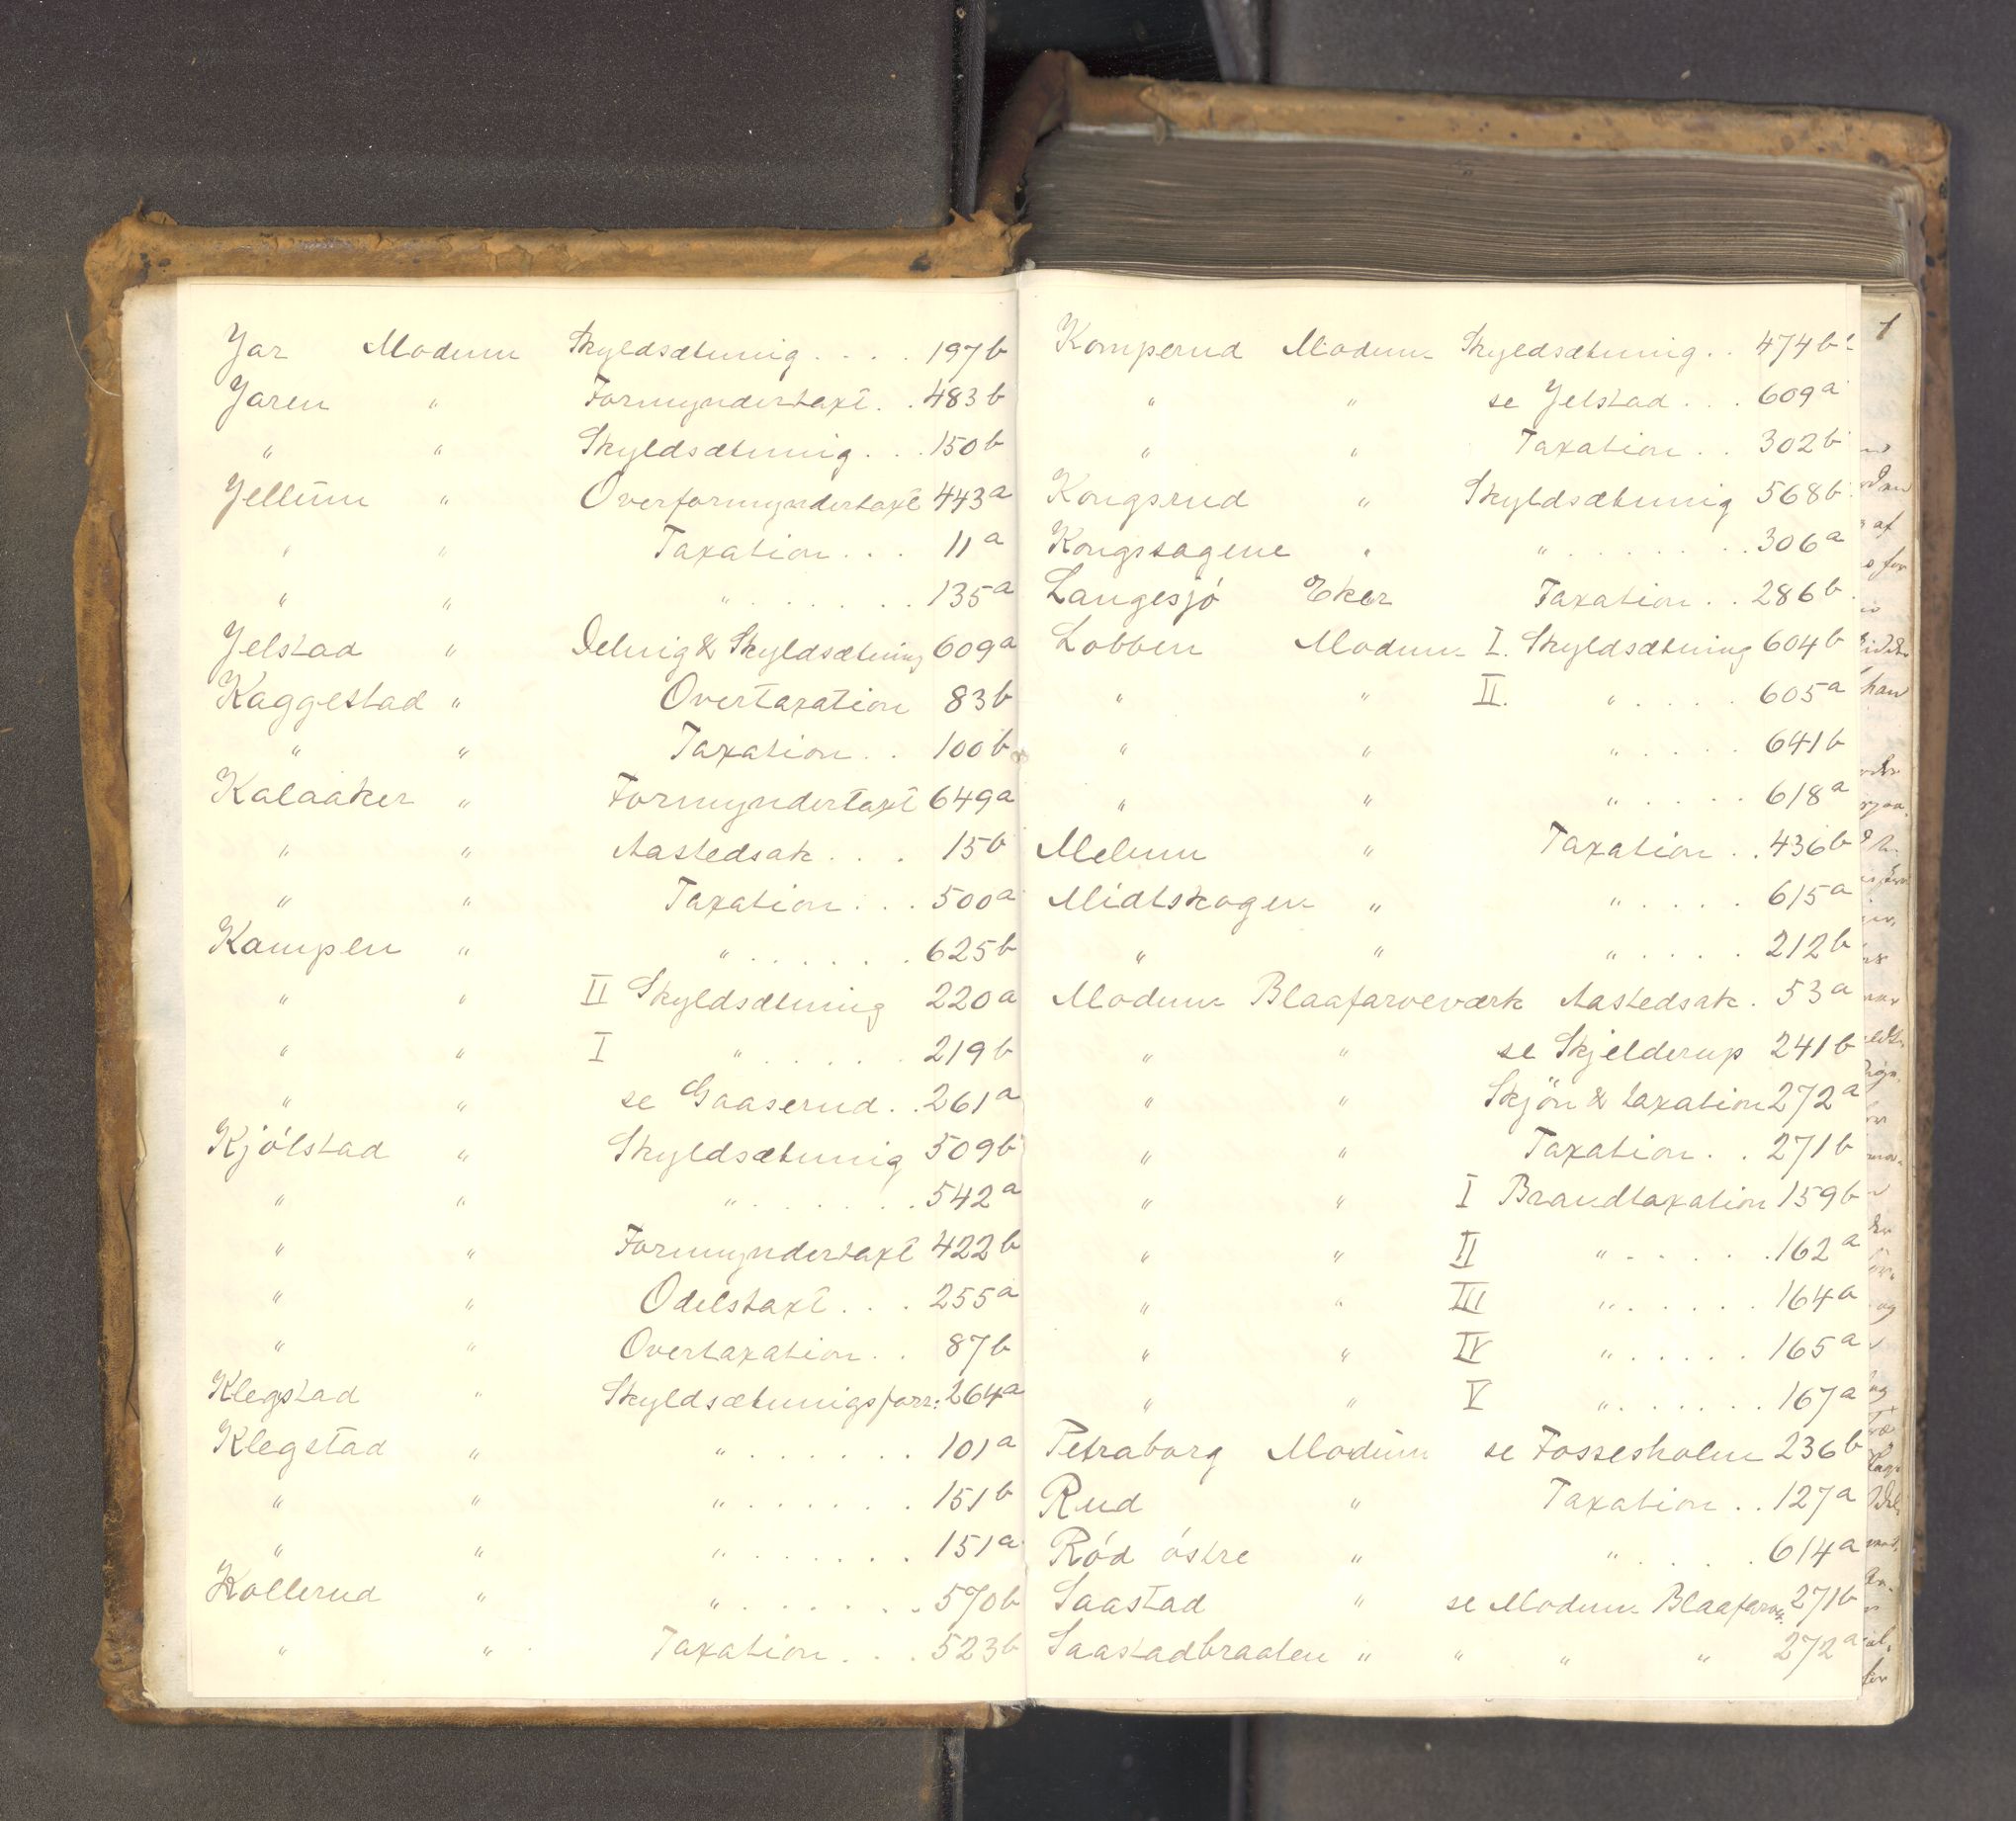 Jar Modum Skyldsætning . . . . 197 b
Jaren " Formyndertaxt . . 483 b
" " Skyldsætning . . . 150 b
Jellum " Overformyndertaxt 443 a
" " Taxation . . . 11 a
" " " . . . . . . . 135 a
Jelstad " Delnig & Skyldsætning 609 a
Kaggestad " Overtaxation 83 b
" " Taxation . . 100 b
Kalaaker " Formyndertaxt 649 a
" " Aastedsak . . . 15 b
" " Taxation . . . 500 a
Kampen " " . . . . . . . 625 b
" " II Skyldsætning 220 a
" " I " . . . . . . 219 b
" " se Gaaserud . . 261 a
Kjólstad " Skyldsætning 509 b
" " " . . . . . . . 542 a
" " Formyndertaxt 422 b
" " Odelstaxt . . . 255 a
" " Overtaxation . . 87 b
Klegstad " Skyldsætningsforr: 264 a
Klegstad " " . . . . . . . 101 a
" " " . . . . . . . 151 b
" " " . . . . . . . 151 a
Kollerud " " . . . . . . . 570 b
" " Taxation . . . 523 b
Komperud Modum Skyldsætning . . 474 b
" " se Jelstad . . . 609 a
" " Taxation . . 302 b
Kongsrud " Skyldsætning 568 b
Kongssagene " " . . . . . . . . 306 a
Langesjó Eker Taxation . . 286 b
Lobben Modum I. Skyldsætning 604 b
" " II. " . . . . . 605 a
" " " . . . . . 641 b
" " " . . . . . 618 a
Melum " Taxation . . 436 b
Midtskogen " " . . . . . 615 a
" " " . . . . . 212 b
Modum Blaafarveværk Aastedsak . 53 a
" " se Skjelderup 241 b
" " Skjön & taxation 272 a
" " Taxation . . 271 b
" " I Brandtaxation 159 b
" " II " . . . . . . 162 a
" " III " . . . . . . 164 a
" " IV " . . . . . . 165 a
" " V " . . . . . . 167 a
Petraborg Modum se Fossesholm 236 b
Rud " Taxation . . 127 a
Ród óstre " " . . . . . 614 a
Saastad " se Modum Blaafarv. 271 b
Saastadbraaten " " " " 272 a
1